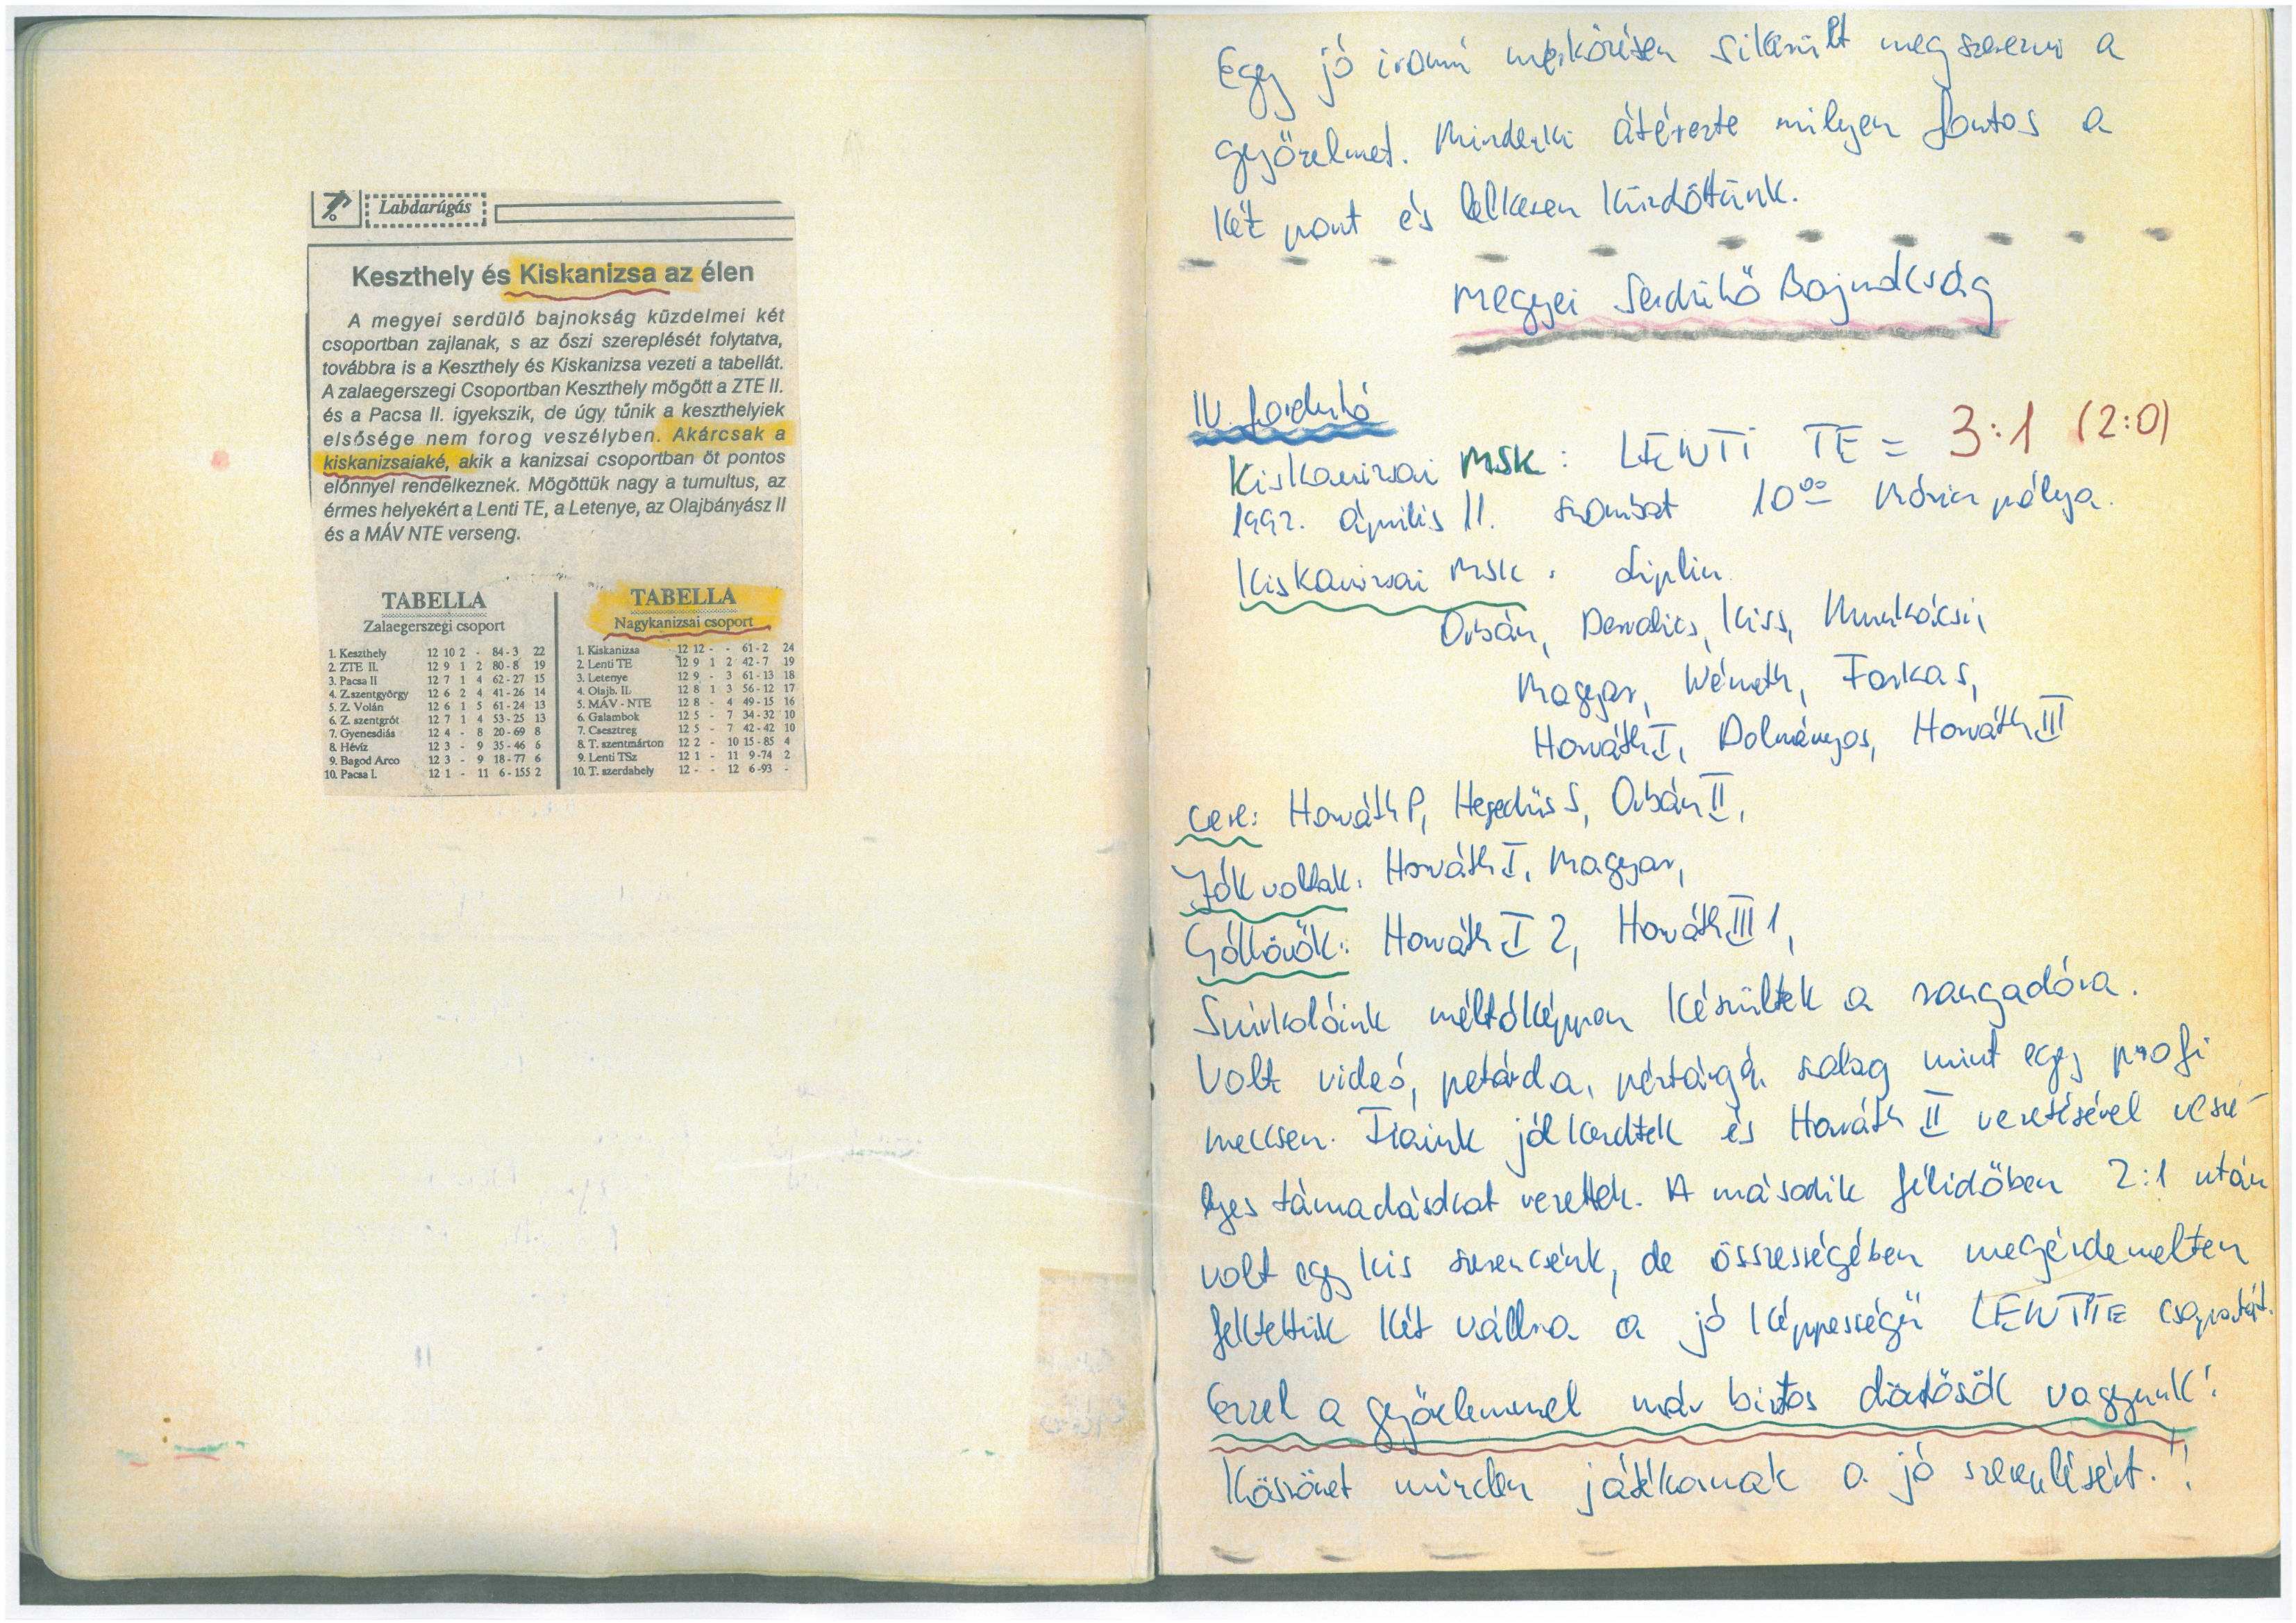 Labdarúgás
Keszthely és Kiskanizsa az élen
A megyei serdülő bajnokság küzdelmei két
csoportban zajlanak, s az őszi szereplését folytatva,
továbbra is a Keszthely és Kiskanizsa vezeti a tabellát.
A zalaegerszegi Csoportban Keszthely mögött a ZTE II.
és a Pacsa II. igyekszik, de úgy tűnik a keszthelyiek
elsősége nem forog veszélyben. Akárcsak a
kiskanizsaiaké, akik a kanizsai csoportban öt pontos
előnnyel rendelkeznek. Mögöttük nagy a tumultus, az
érmes helyekért a Lenti TE, a Letenye, az Olajbányász II
és a MÁV NTE verseng.
TABELLA
Zalaegerszegi csoport
1. Keszthely 12 10 2 - 84-3 22
2. ZTE II. 12 9 1 2 80-8 19
3. Pacsa II 12 7 1 4 62-27 15
4. Z.szentgyörgy 12 6 2 4 41-26 14
5. Z. Volán 12 6 1 5 61-24 13
6. Z. szentgrót 12 7 1 4 53-25 13
7. Gyenesdiás 12 4 - 8 20-69 8
8. Hévíz 12 3 - 9 35-46 6
9. Bagod Arco 12 3 - 9 18-77 6
10. Pacsa I. 12 1 - 11 6-155 2
TABELLA
Nagykanizsai csoport
1. Kiskanizsa 12 12 - - 61-2 24
2. Lenti TE 12 9 1 2 42-7 19
3. Letenye 12 9 - 3 61-13 18
4. Olajb. II. 12 8 1 3 56-12 17
5. MÁV - NTE 12 8 - 4 49-15 16
6. Galambok 12 5 - 7 34-32 10
7. Csesztreg 12 5 - 7 42-42 10
8. T. szentmárton 12 2 - 10 15-85 4
9. Lenti TSz 12 1 - 11 9-74 2
10. T. szerdahely 12 - - 12 6-93 -
Egy jó iramú mérkőzésen sikerült megszerezni a
győzelmet. Mindenki átérezte milyen fontos a
két pont és lelkesen küzdöttünk.
Megyei Serdülő Bajnokság
IV. forduló
Kiskanizsai MSK : LENTI TE = 3:1 (2:0)
1992. április 11. szombat 10 00 Móricz pálya.
Kiskanizsai MSK:
Orbán, Dervalics, Kiss, Munkácsi,
Magyar, Németh, Farkas,
Horváth I, Dolmányos, Horváth III
csere: Horváth P, Hegedüs S, Orbán II,
Jók voltak: Horváth I, Magyar,
Góllövők: Horváth I 2, Horváth III 1,
Szurkolóink méltóképpen készültek a rangadóra.
Volt videó, petárda, pénztárgép szalag mint egy profi
meccsen. Fiaink jól kezdtek és Horváth II vezetésével veszé-
lyes támadásokat vezettek. A második félidőben 2:1 után
volt egy kis szerencsénk, de összességében megérdemelten
fektettük két vállra a jó képpességű LENTI TE csapatát.
Ezzel a győzelemmel már biztos döntősök vagyunk!
Köszönet minden játékosnak a jó szereplésért.!!